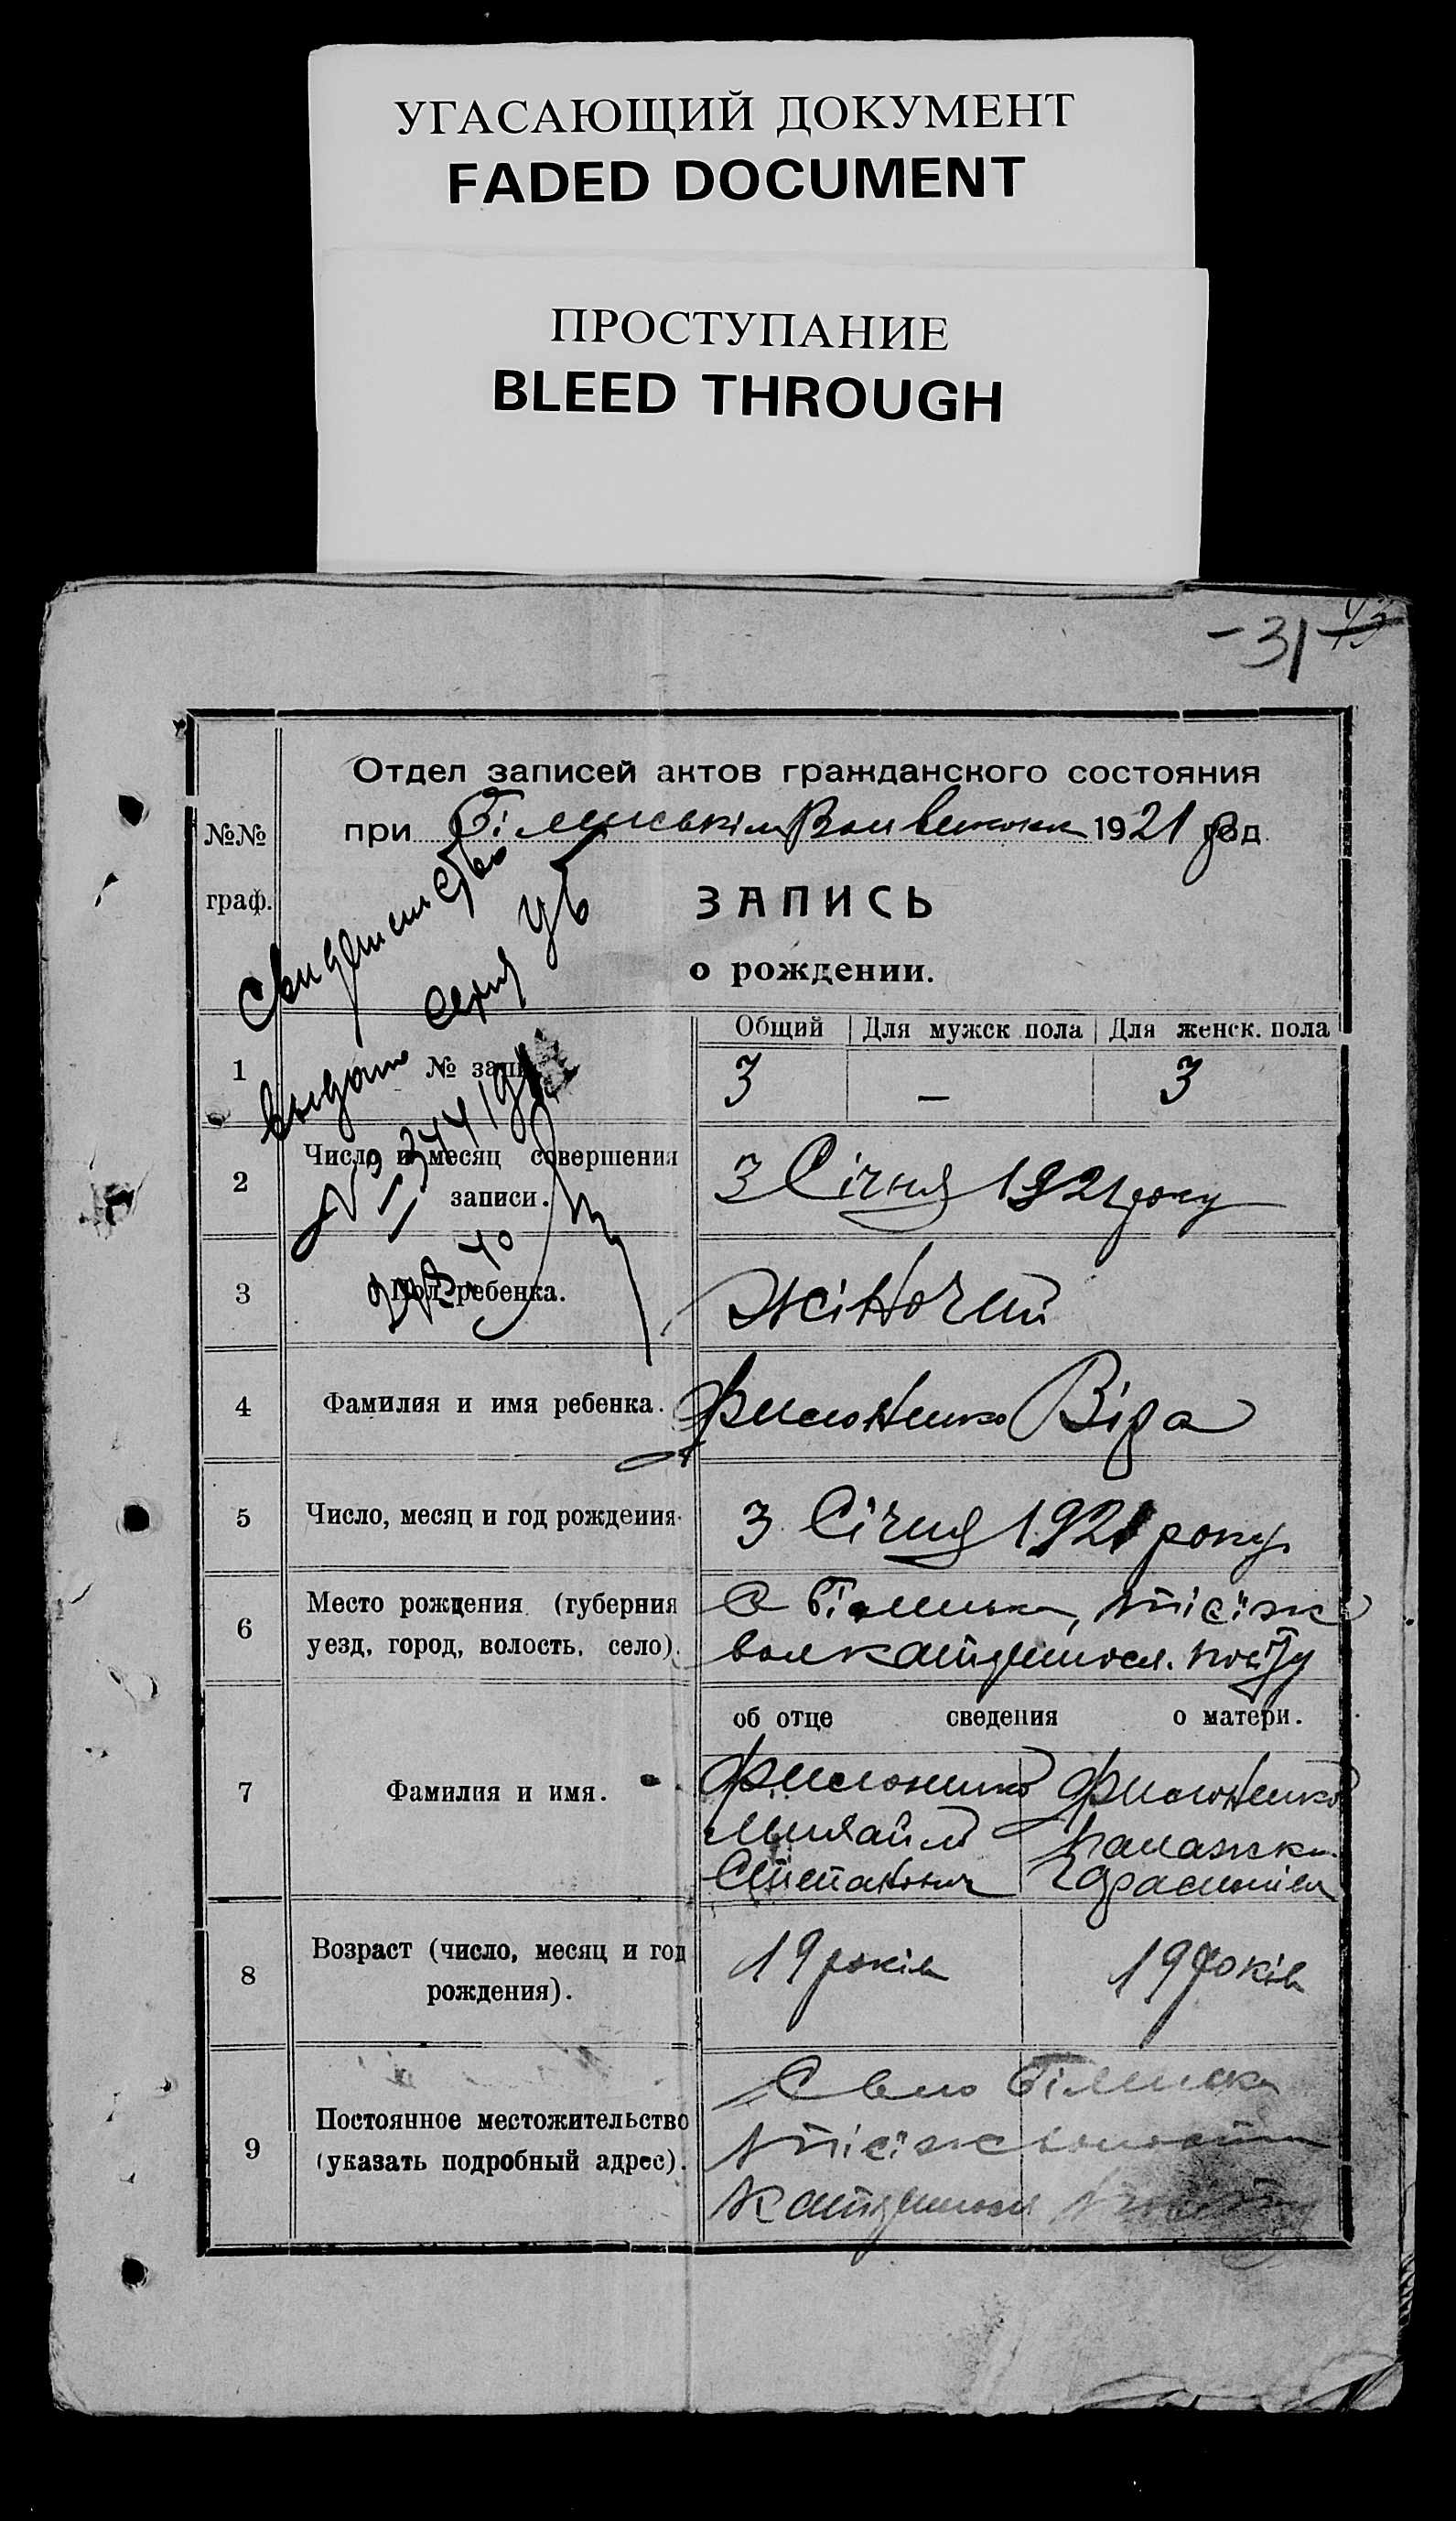 УГАСАЮЩИЙ ДОКУМЕНТ
FADED DOCUMENT
ПРОСТУПАНИЕ
BLEED THROUGH
-31
Отдел записей актов гражданского состояния
№№ граф.
при 1921 год
ЗАПИСЬ
о рождении.
Свидетельство
выдано серия УБ
Общий Для мужск пола Для женск. пола
1 № 3 — 3
2 Число и месяц совершения записи. 3 Січня 1921 року
3 Пол ребенка. жіночий
4 Фамилия и имя ребенка. Филоненко Віра
5 Число, месяц и год рождения. 3 Січня 1921 року
6 Место рождения (губерния
уезд, город, волость, село).
об отце сведения о матери.
7 Фамилия и имя. Филоненко Филоненко
Михайло Палажка
Степанович
8 Возраст (число, месяц и год рождения). 19 років 19 років
9 Постоянное местожительство
(указать подробный адрес).
Село